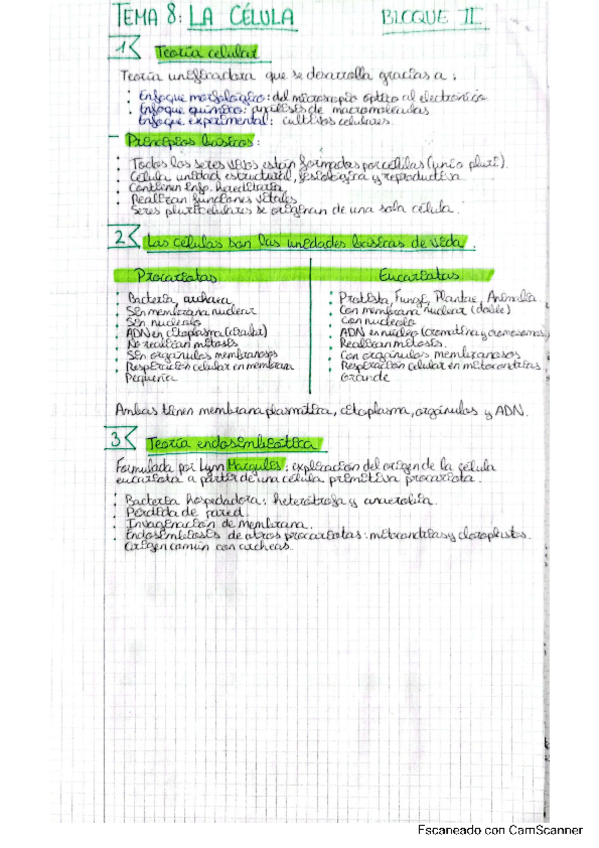 TEMA 8: LA CÉLULA BLOQUE II
1 Teoría celular
Teoría unificadora que se desarrolla gracias a:
· Enfoque morfológico: del microscopio óptico al electrónico.
· Enfoque químico: análisis de macromoléculas
Enfoque experimental: cultivos celulares.
- Principios básicos:
· Todos los seres vivos están formados por células (uni o pluri).
· Célula unidad estructural, fisiológica y reproductiva
· Contienen info. hereditaria.
· Realizan funciones vitales
Seres pluricelulares se originan de una sola célula.
2 Las células son las unidades básicas de vida.
Procariotas Eucariotas
· Bacteria, archaea · Protista, Fungi, Plantae, Animalia
· Sin membrana nuclear · Con membrana nuclear (doble)
· Sin nucleolo · Con nucleolo
· ADN en citoplasma (circular) · ADN en núcleo (cromatina y cromosomas)
· No realizan mitosis · Realizan mitosis.
· Sin orgánulos membranosos · Con orgánulos membranosos
· Respiración celular en membrana · Respiración celular en mitocondrias
Pequeña Grande
Ambas tienen membrana plasmática, citoplasma, orgánulos y ADN.
3 Teoría endosimbiótica
Formulada por Lynn Margulis: explicación del origen de la célula
eucariota a partir de una célula primitiva procariota.
· Bacteria hospedadora: heterótrofa y anaerobia.
· Pérdida de pared.
· Invaginación de membrana.
· Endosimbiosis de otros procariotas: mitocondrias y cloroplastos.
Origen común con archeas.
Escaneado con CamScanner